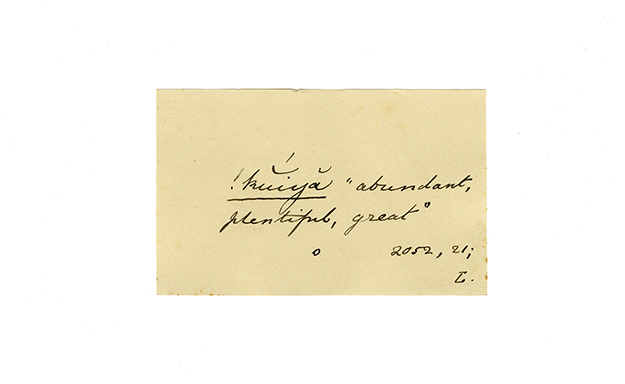 !kŭíyă "abundant,
plentiful, great"
2052, 21;
L.